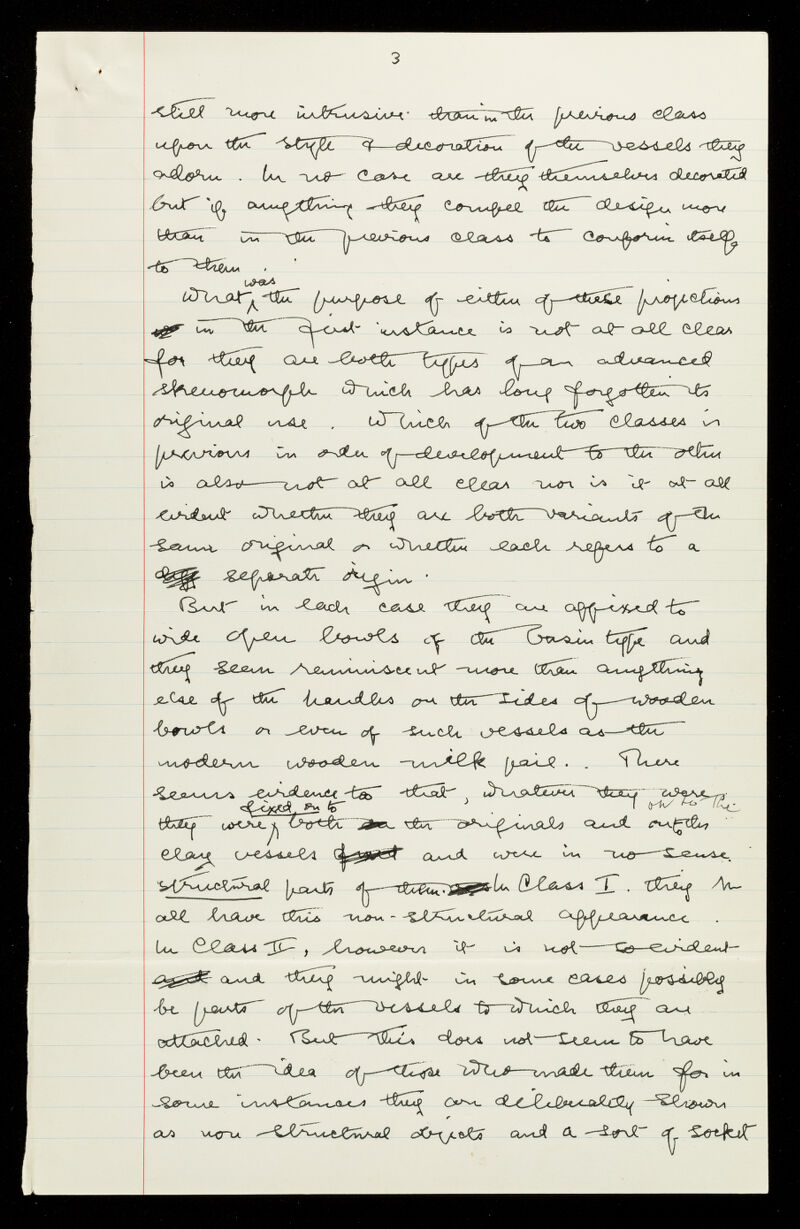 3
still more intrusive than in the previous class
upon the style & decoration of the vessels they
adorn. In no case are they themselves decorated
but if anything they compel the design more
than in the previous class to conform itself
to them.
was
What the purpose of either of these projections
in the first instance is not at all clear
for they are both types of an advanced
skeuomorph which has long forgotten its
original use. Which of the two classes is
previous in order of development to the other
is also not at all clear nor is it at all
evident whether they are both variants of the
same original or whether each refers to a
separate origin.
But in each case they are affixed to
wide open bowls of the basin type and
they seem reminiscent more than anything
else of the handles on the sides of wooden
bowls or even of such vessels as the
modern wooden milk pail.. There
seems evidence to that, whatever they were,
fixed on to
on to the
they were both the originals and onto the
clay vessels and were in no sense
structural parts of them. In Class I. they
all have this non-structural appearance.
In Class II, however it is not so evident
and they might in some cases possibly
be parts of the vessels to which they are
attached. But this does not seem to have
been the idea of those who made them for in
some instances they are deliberately shown
as non structural objects and a sort of socket